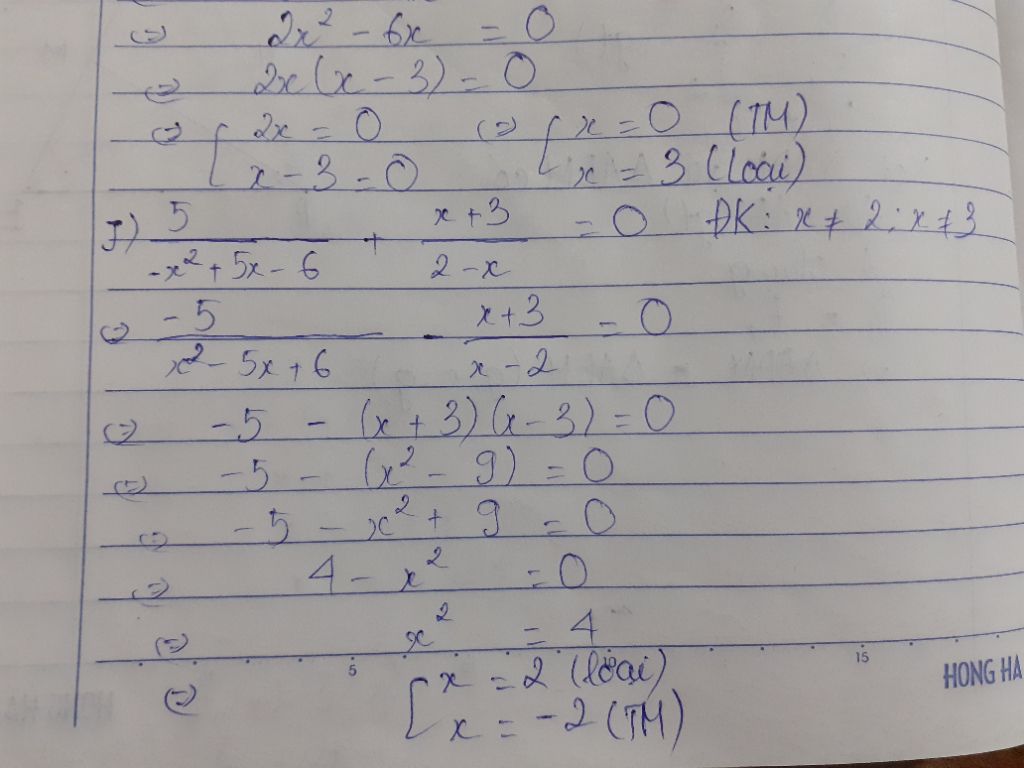 ⇔ 2x² - 6x = 0
⇔ 2x(x - 3) = 0
⇔ [ 2x = 0 ⇔ [ x = 0 (TM)
x - 3 = 0 x = 3 (loại)
J) 5/(-x² + 5x - 6) + (x + 3)/(2 - x) = 0 ĐK: x ≠ 2; x ≠ 3
⇔ -5/(x² - 5x + 6) - (x + 3)/(x - 2) = 0
⇔ -5 - (x + 3)(x - 3) = 0
⇔ -5 - (x² - 9) = 0
⇔ -5 - x² + 9 = 0
⇔ 4 - x² = 0
⇔ x² = 4
5 15
⇔ [ x = 2 (loại)
x = -2 (TM)
HONG HA